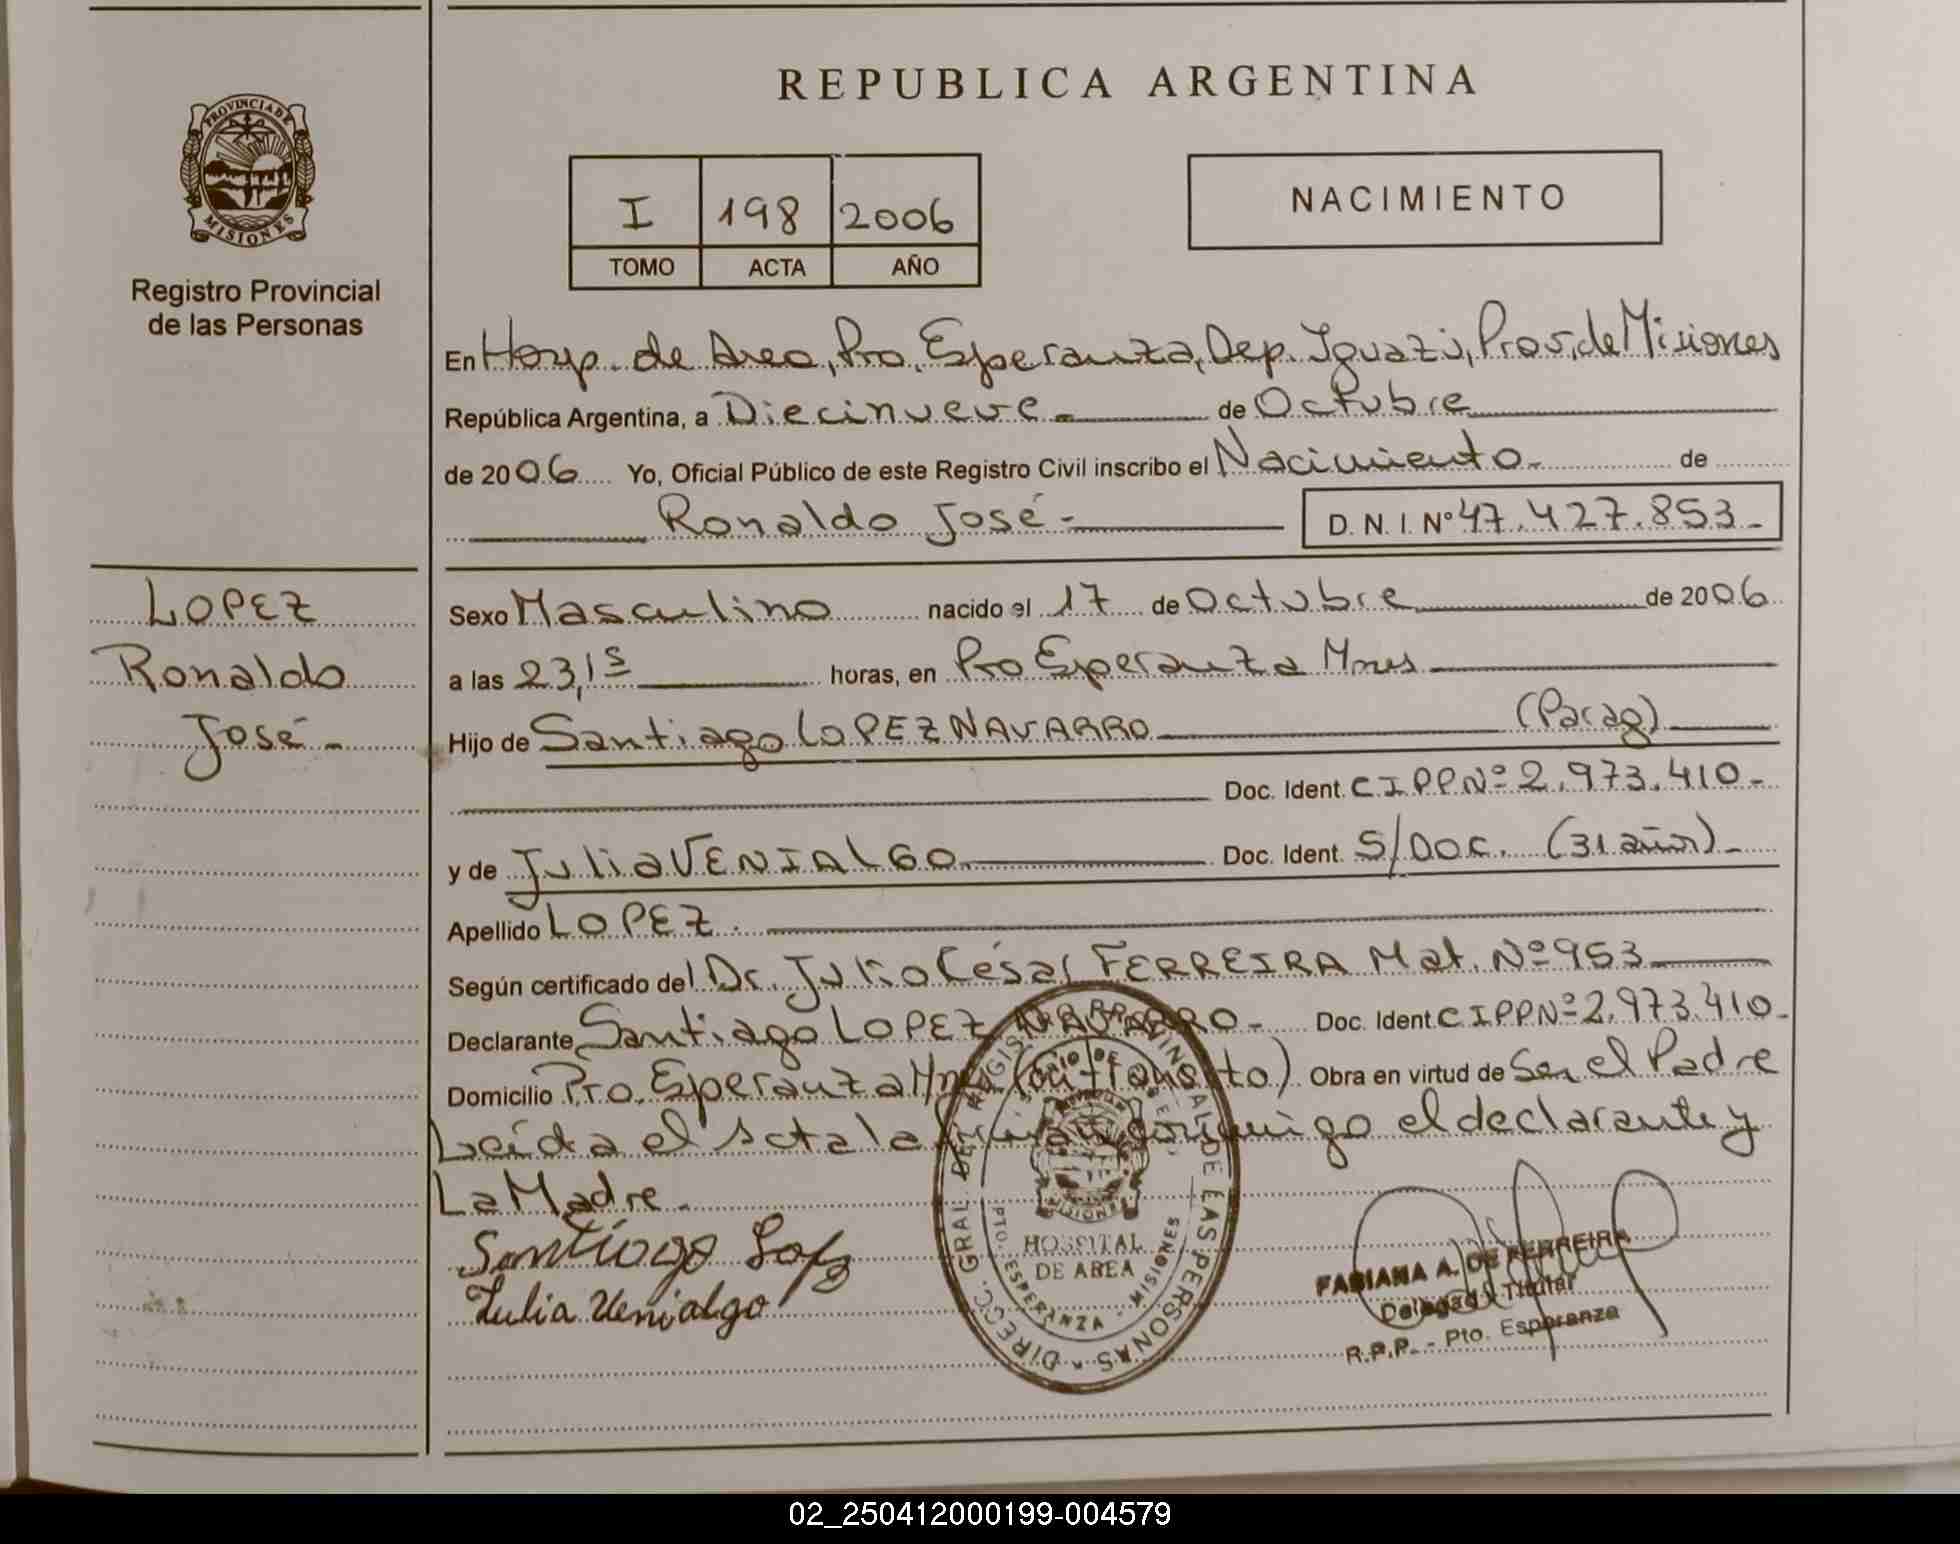 REPUBLICA ARGENTINA
PROVINCIA DE
MISIONES
Registro Provincial
de las Personas
I 198 2006
TOMO ACTA AÑO
NACIMIENTO
En Hosp. de Area, Pto. Esperanza, Dep. Iguazú, Prov. de Misiones
República Argentina, a Diecinueve - de Octubre
de 2006 Yo, Oficial Público de este Registro Civil inscribo el Nacimiento - de
Ronaldo José - D. N. I. Nº 47.427.853 -
LOPEZ
Ronaldo
José -
Sexo Masculino nacido el 17 de Octubre de 2006
a las 23,15 horas, en Pto Esperanza Mnes
Hijo de Santiago LOPEZ NAVARRO (Parag)
Doc. Ident. CIPPNº 2.973.410 -
y de Julia VENIALGO Doc. Ident. S/DOC. (31 años) -
Apellido LOPEZ.
Según certificado del Dr. Julio César FERREIRA Mat. Nº 953
Declarante Santiago LOPEZ NAVARRO - Doc. Ident CIPPNº 2.973.410 -
Domicilio Pto. Esperanza Mnes (en transito) Obra en virtud de Ser el Padre
Leída el acta la firman conmigo el declarante y
La Madre -
Santiago Lopez
Julia Venialgo
DIRECC. GRAL. DEL REGISTRO PROVINCIAL DE LAS PERSONAS
MISIONES
HOSPITAL
DE AREA
PTO. ESPERANZA - MISIONES
FABIANA A. DE FERREIRA
Delegada Titular
R.P.P. - Pto. Esperanza
02_250412000199-004579